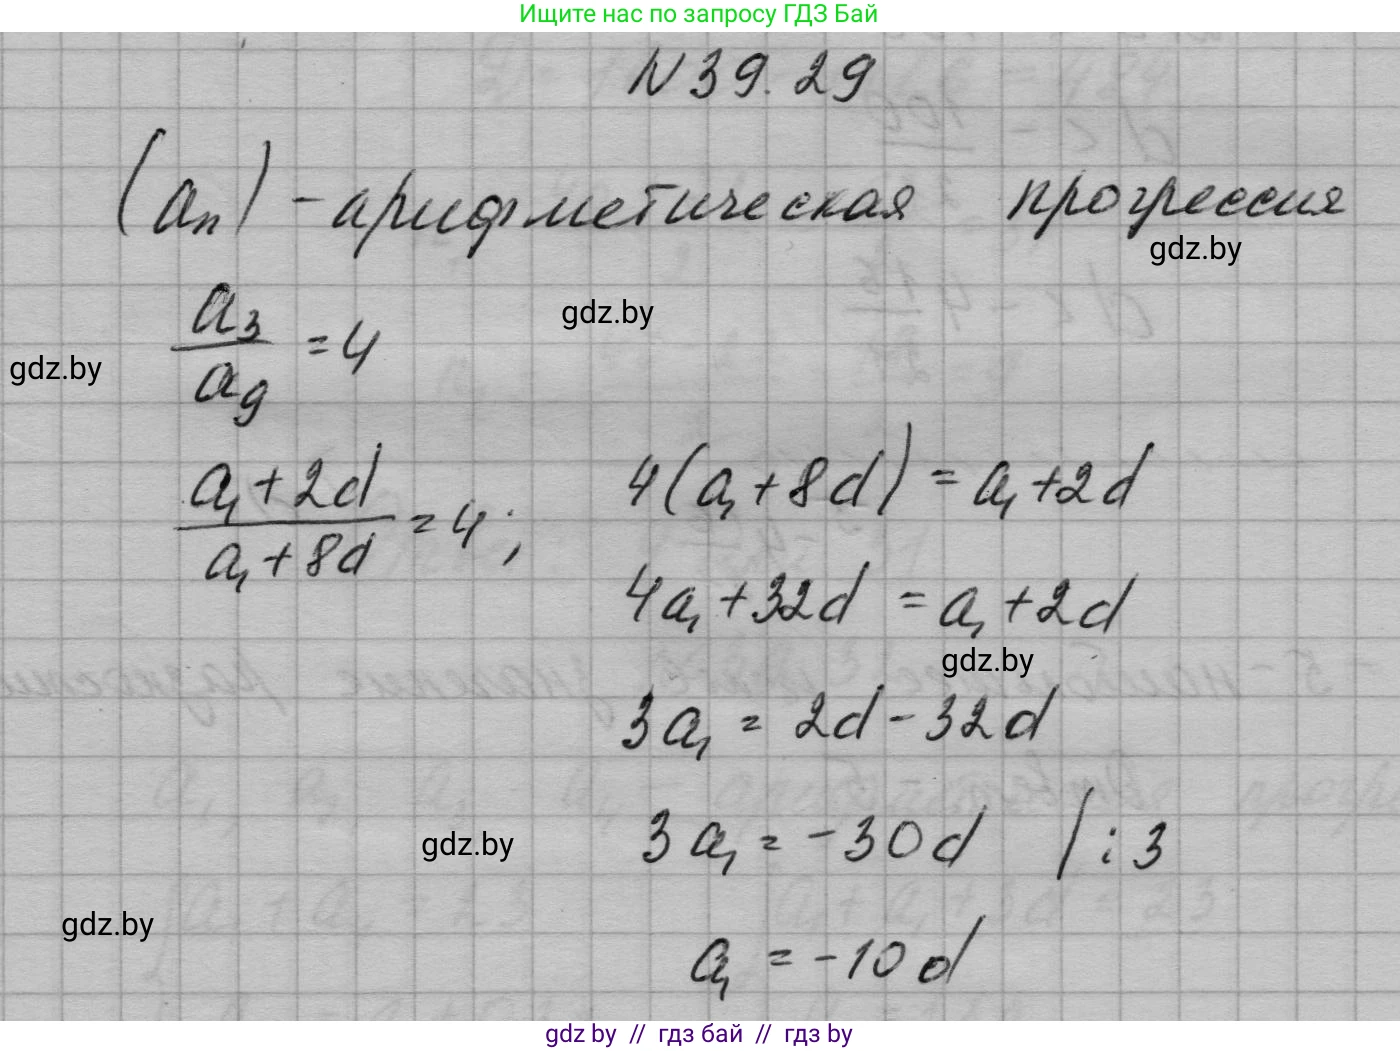 Ищите нас по запросу ГДЗ Бай
N 39.29
(aₙ) - арифметическая прогрессия
gdz.by
gdz.by
a₃/a₉ = 4
gdz.by
(a₁ + 2d)/(a₁ + 8d) = 4;
4(a₁ + 8d) = a₁ + 2d
4a₁ + 32d = a₁ + 2d
gdz.by
3a₁ = 2d - 32d
3a₁ = -30d | : 3
gdz.by
gdz.by
a₁ = -10d
gdz by // гдз бай // гдз by